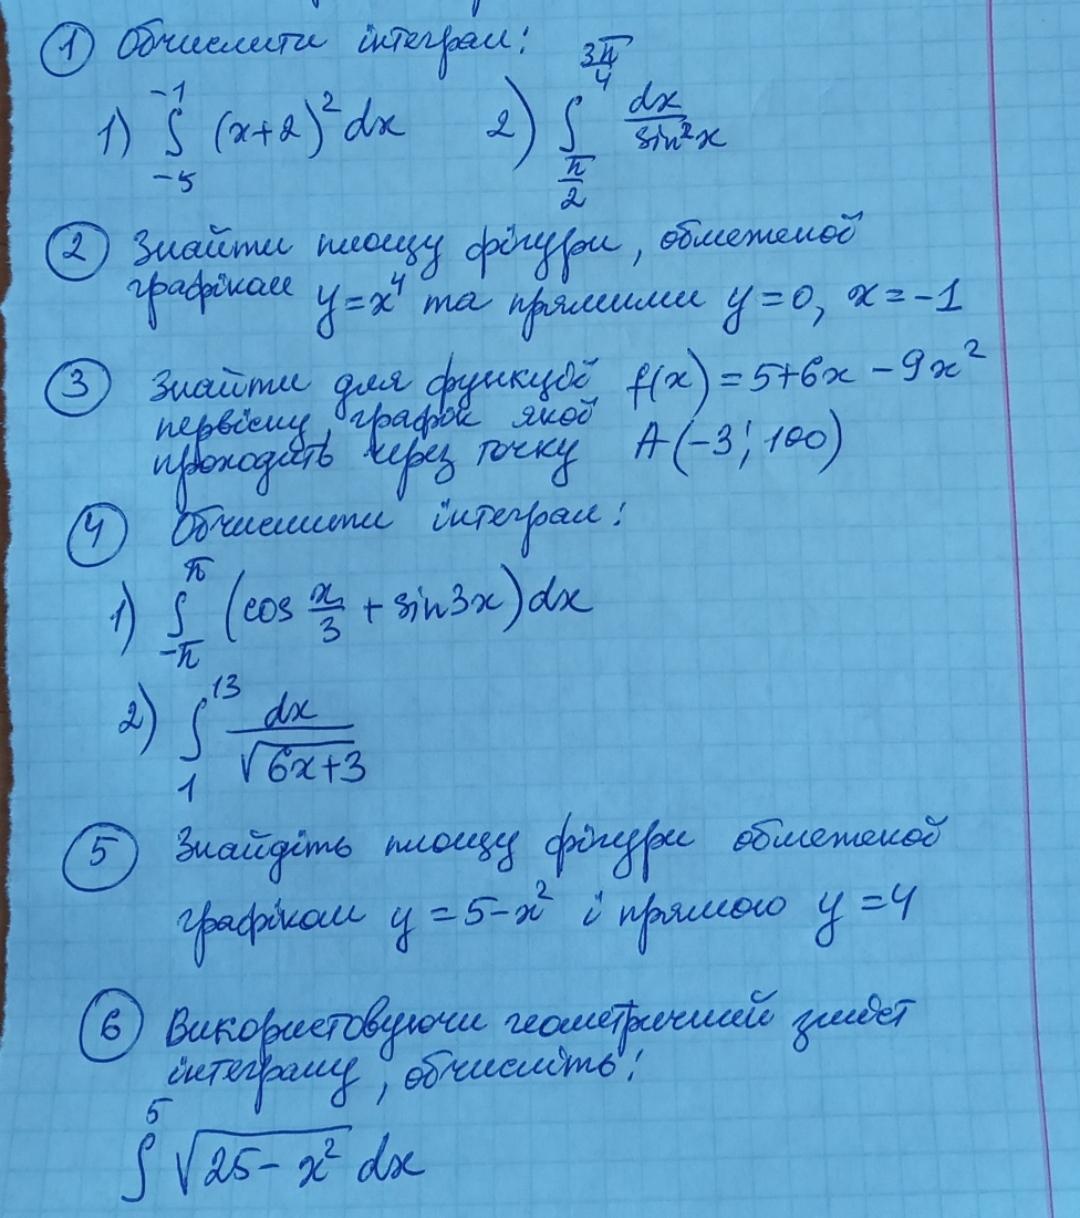 ① Обчислити інтеграл:
1) ∫_{-5}^{-1} (x+2)² dx 2) ∫_{π/2}^{3π/4} dx/sin²x
② Знайти площу фігури, обмеженої
графіком y=x⁴ та прямими y=0, x=-1
③ Знайти для функції f(x)=5+6x-9x²
первісну, графік якої
проходить через точку A(-3; 100)
④ Обчислити інтеграл:
1) ∫_{-π}^{π} (cos x/3 + sin3x)dx
2) ∫_{1}^{13} dx/√(6x+3)
⑤ Знайдіть площу фігури обмеженої
графіком y=5-x² і прямою y=4
⑥ Використовуючи геометричний зміст
інтегралу, обчисліть:
∫^{5} √(25-x²) dx